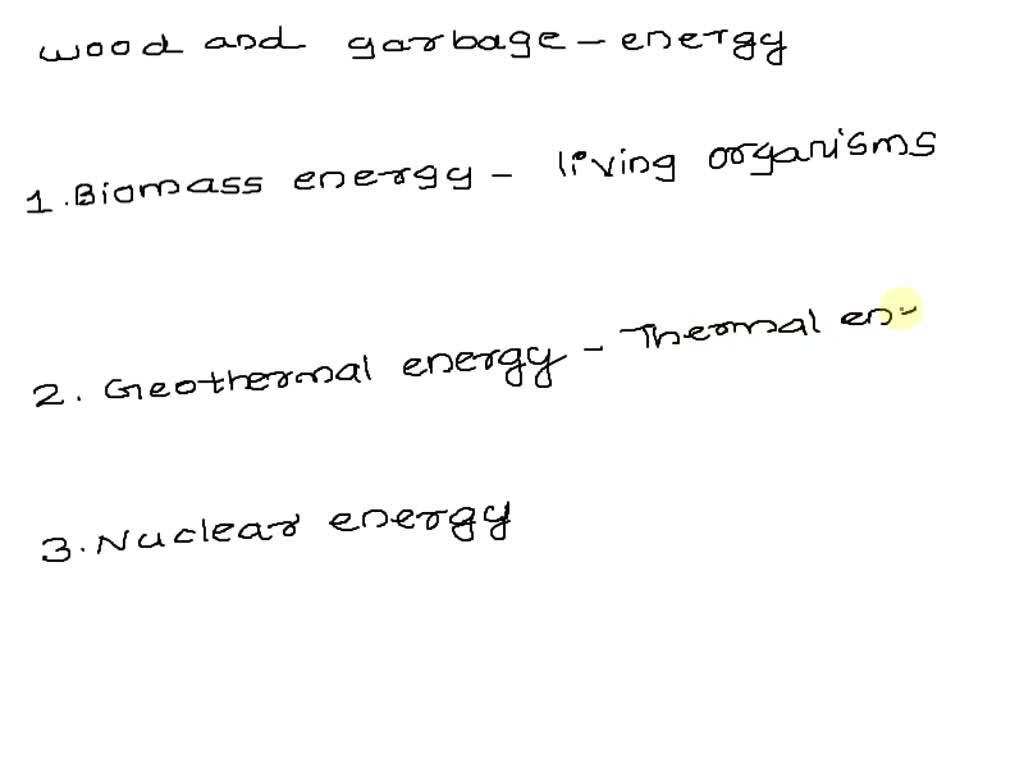 wood and garbage - energy
1. Biomass energy - living organisms
2. Geothermal energy - Thermal en
3. Nuclear energy